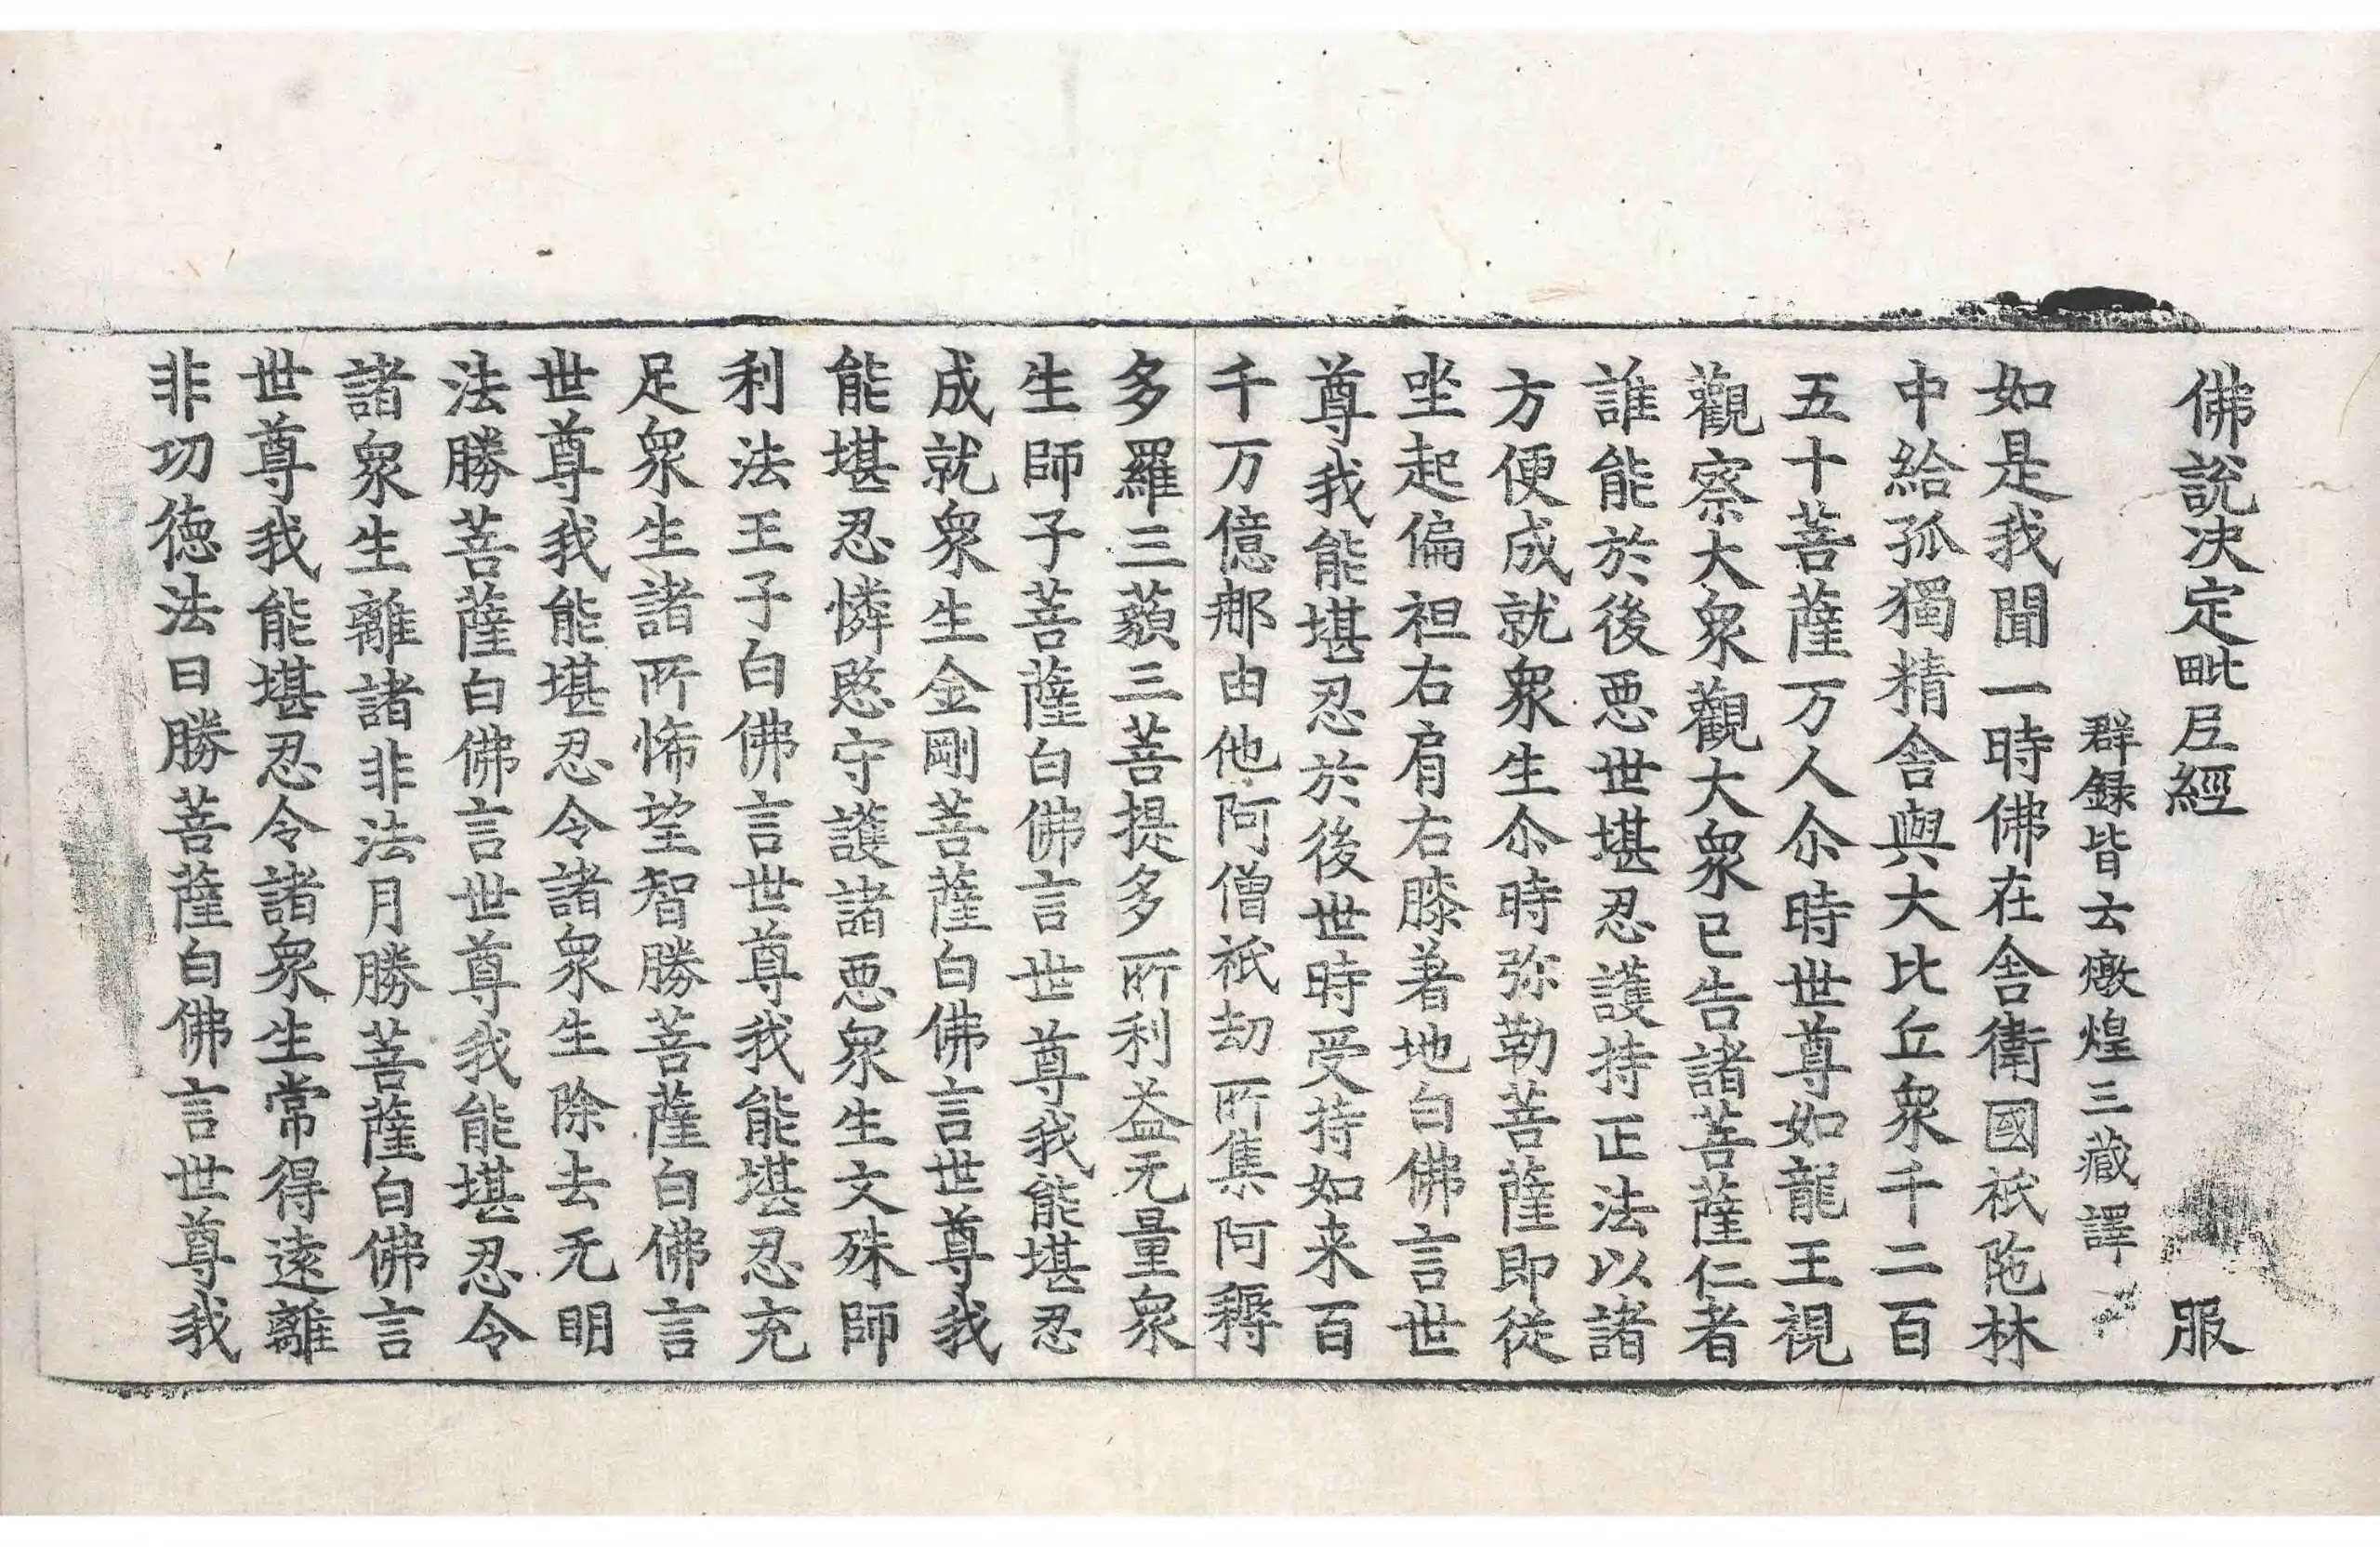 佛說决定毗尼經　　服
群録皆云燉煌三藏譯
如是我聞一時佛在舍衛國祇陁林
中給孤獨精舍與大比丘衆千二百
五十菩薩万人尒時世尊如龍王視
觀察大衆觀大衆已告諸菩薩仁者
誰能於後惡世堪忍護持正法以諸
方便成就衆生尒時弥勒菩薩即從
坐起偏袒右肩右膝著地白佛言世
尊我能堪忍於後世時受持如来百
千万億那由他阿僧祇劫所集阿耨
多羅三藐三菩提多所利益无量衆
生師子菩薩白佛言世尊我能堪忍
成就衆生金剛菩薩白佛言世尊我
能堪忍憐愍守護諸惡衆生文殊師
利法王子白佛言世尊我能堪忍充
足衆生諸所悕望智勝菩薩白佛言
世尊我能堪忍令諸衆生除去无明
法勝菩薩白佛言世尊我能堪忍令
諸衆生離諸非法月勝菩薩白佛言
世尊我能堪忍令諸衆生常得遠離
非功德法日勝菩薩白佛言世尊我